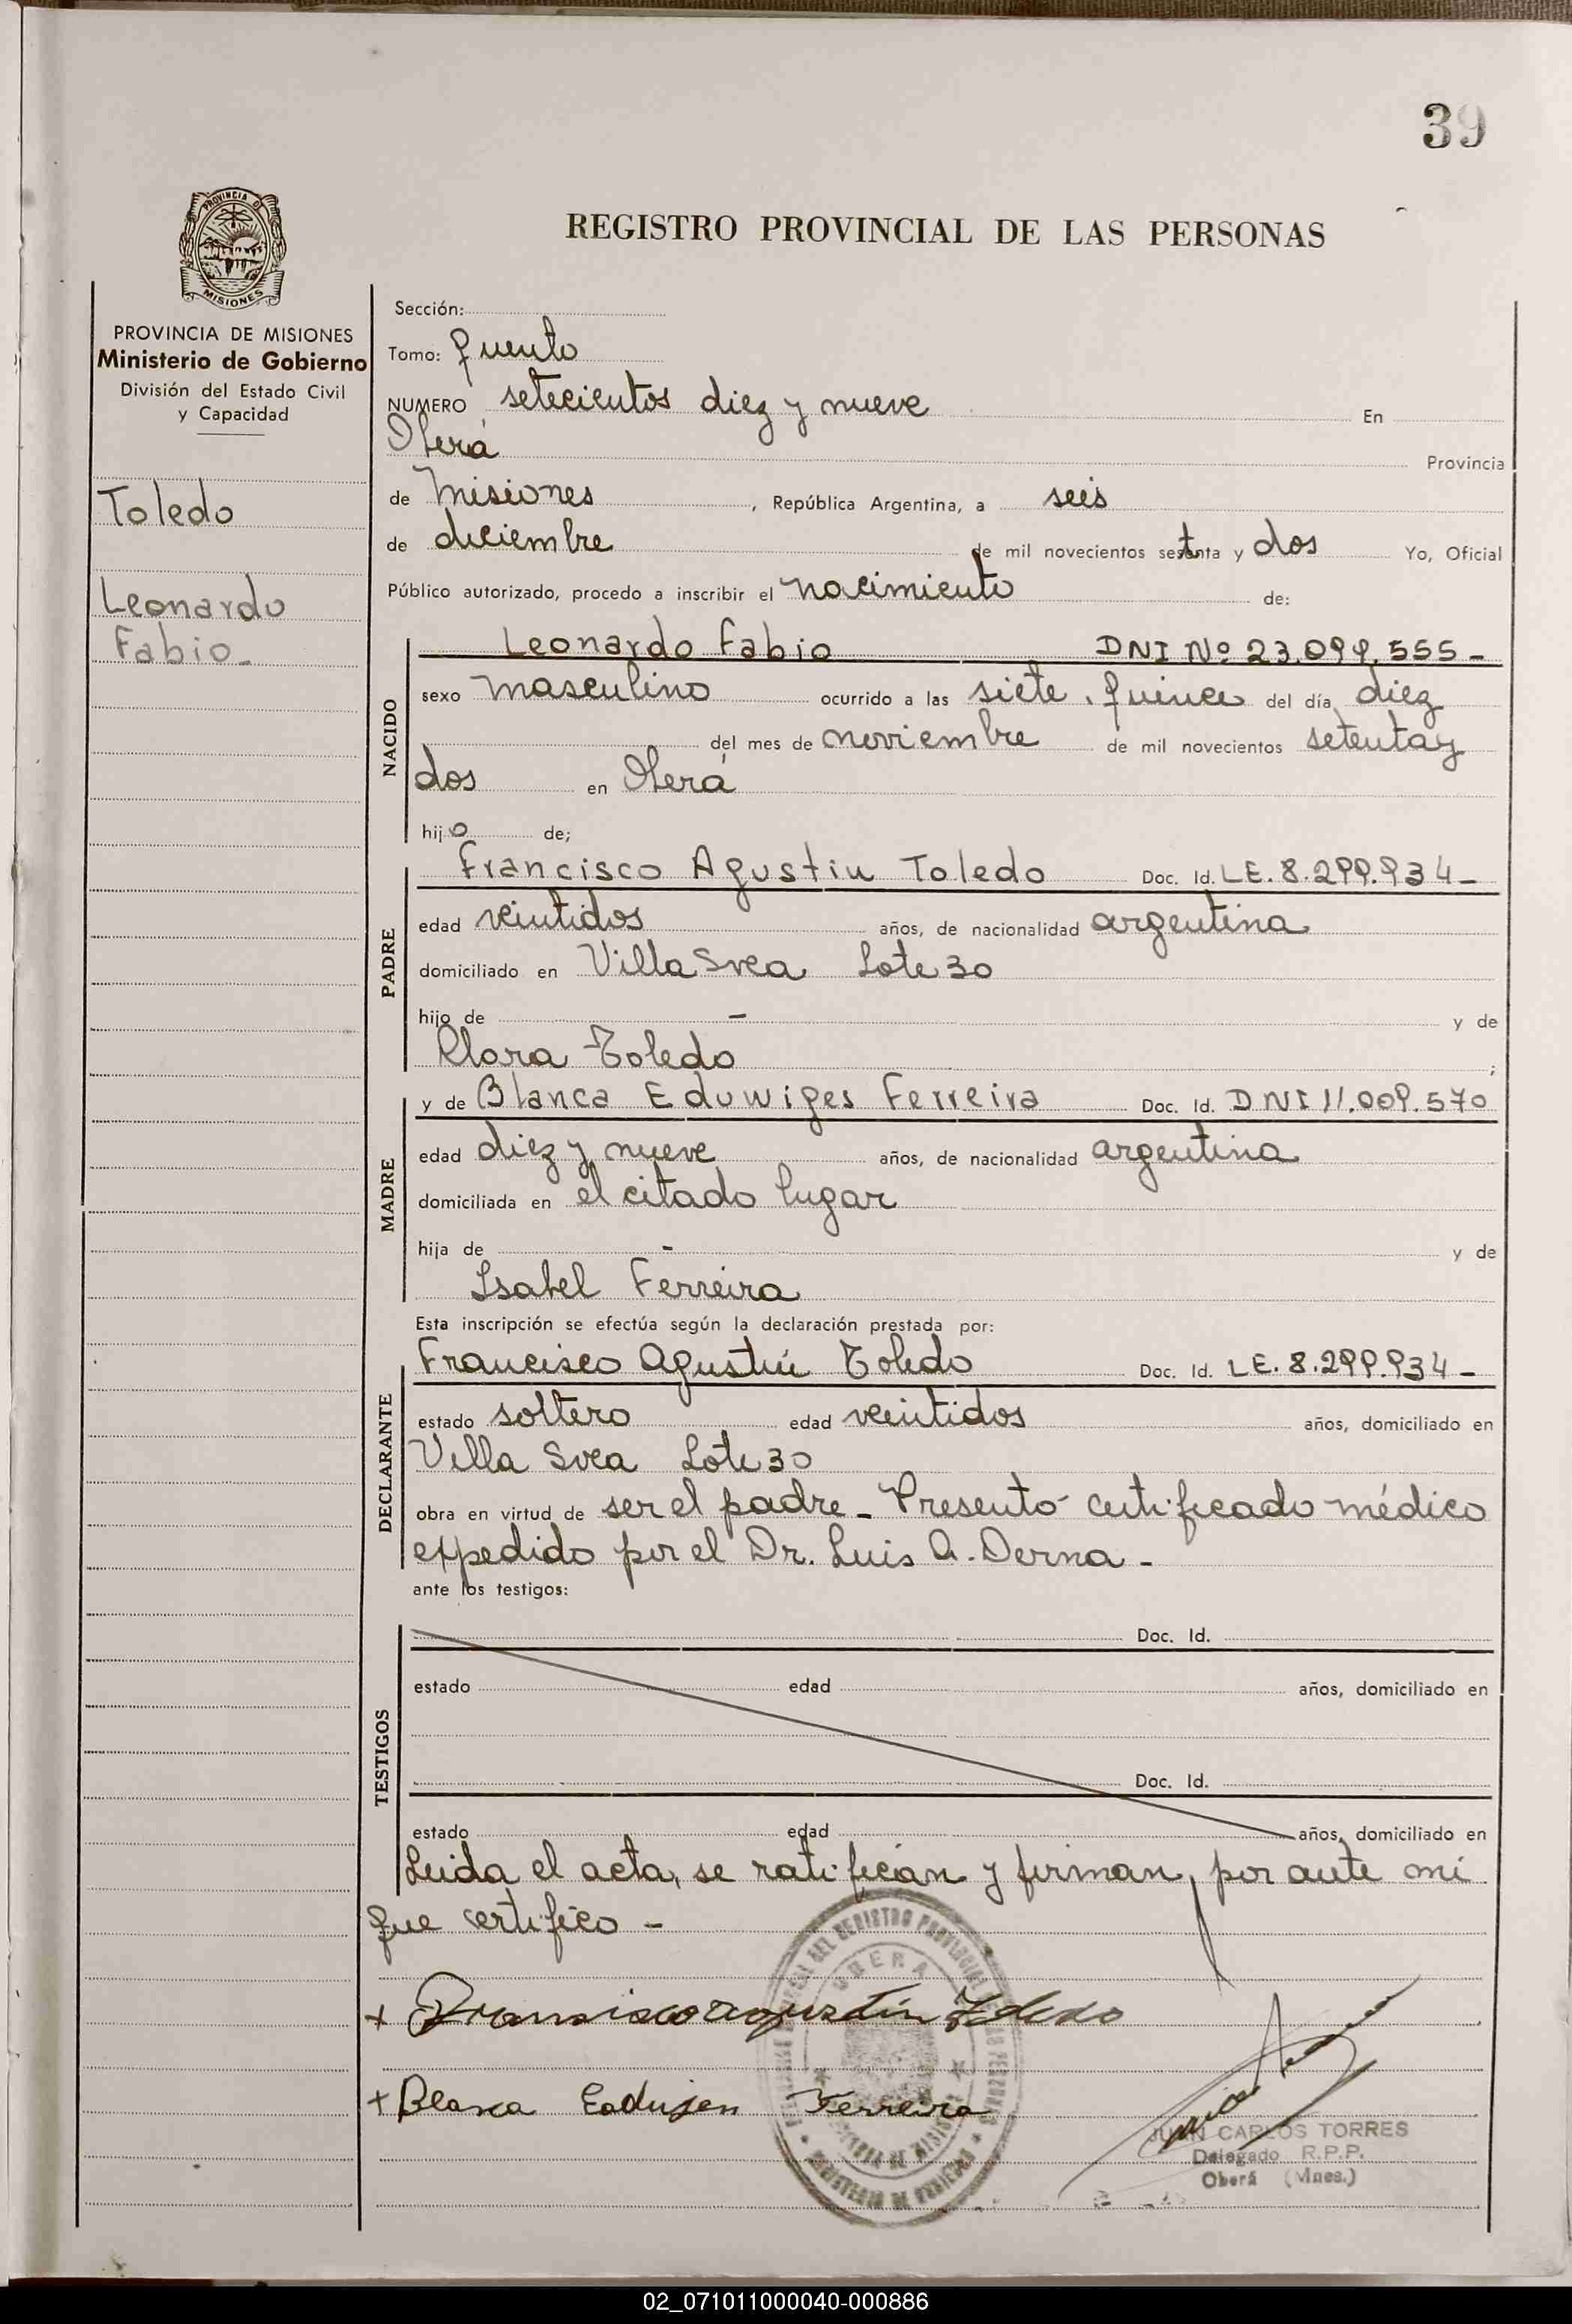 39
PROVINCIA DE
MISIONES
REGISTRO PROVINCIAL DE LAS PERSONAS
PROVINCIA DE MISIONES
Ministerio de Gobierno
División del Estado Civil
y Capacidad
Toledo
Leonardo
Fabio_
Sección:
Tomo: quinto
NUMERO setecientos diez y nueve En
Oberá Provincia
de Misiones, República Argentina, a seis
de diciembre de mil novecientos setenta y dos Yo, Oficial
Público autorizado, procedo a inscribir el nacimiento de:
NACIDO
Leonardo Fabio DNI Nº 23.099.555-
sexo masculino ocurrido a las siete, quince del día diez
del mes de noviembre de mil novecientos setenta y
dos en Oberá
hijo de;
PADRE
Francisco Agustin Toledo Doc. Id. LE. 8.299.934-
edad veintidos años, de nacionalidad argentina
domiciliado en Villa Svea Lote 30
hijo de - y de
Clora Toledo;
MADRE
y de Blanca Eduwiges Ferreira Doc. Id. DNI 11.009.570
edad diez y nueve años, de nacionalidad argentina
domiciliada en el citado lugar
hija de - y de
Isabel Ferreira
Esta inscripción se efectúa según la declaración prestada por:
DECLARANTE
Francisco Agustín Toledo Doc. Id. LE. 8.299.934-
estado soltero edad veintidos años, domiciliado en
Villa Svea Lote 30
obra en virtud de ser el padre_ Presentó certificado médico
expedido por el Dr. Luis A. Derna-
ante los testigos:
TESTIGOS
Doc. Id.
estado edad años, domiciliado en
Doc. Id.
estado edad años, domiciliado en
Leida el acta, se ratifican y firman, por ante mí
que certifico-
+ Francisco agustin Toledo
+ Blanca Ferreira
OBERA
JUAN CARLOS TORRES
Delegado R.P.P.
Oberá (Mnes.)
02_071011000040-000886